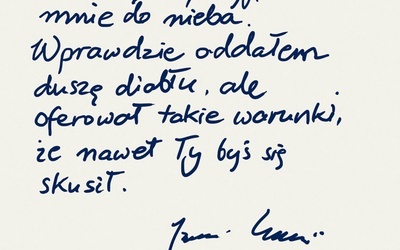 mnie do nieba.
Wprawdzie oddałem
duszę diabłu, ale
oferował takie warunki,
że nawet Ty byś się
skusił.